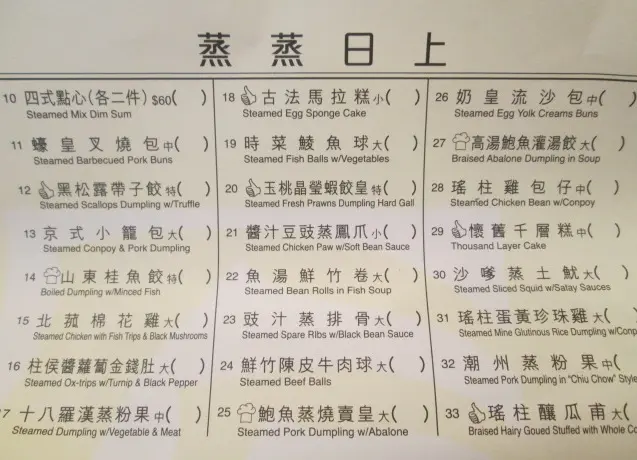 蒸蒸日上
10 四式點心(各二件) $60( )
Steamed Mix Dim Sum
11 蠔皇叉燒包中( )
Steamed Barbecued Pork Buns
12 黑松露帶子餃特( )
Steamed Scallops Dumpling w/Truffle
13 京式小籠包大( )
Steamed Conpoy & Pork Dumpling
14 山東桂魚餃特( )
Boiled Dumpling w/Minced Fish
15 北菰棉花雞大( )
Steamed Chicken with Fish Trips & Black Mushrooms
16 柱侯醬蘿蔔金錢肚大( )
Steamed Ox-trips w/Turnip & Black Pepper
17 十八羅漢蒸粉果中( )
Steamed Dumpling w/Vegetable & Meat
18 古法馬拉糕小( )
Steamed Egg Sponge Cake
19 時菜鯪魚球大( )
Steamed Fish Balls w/Vegetables
20 玉桃晶瑩蝦餃皇特( )
Steamed Fresh Prawns Dumpling Hard Gall
21 醬汁豆豉蒸鳳爪小( )
Steamed Chicken Paw w/Soft Bean Sauce
22 魚湯鮮竹卷大( )
Steamed Bean Rolls in Fish Soup
23 豉汁蒸排骨大( )
Steamed Spare Ribs w/Black Bean Sauce
24 鮮竹陳皮牛肉球大( )
Steamed Beef Balls
25 鮑魚蒸燒賣皇大( )
Steamed Pork Dumpling w/Abalone
26 奶皇流沙包中( )
Steamed Egg Yolk Creams Buns
27 高湯鮑魚灌湯餃大( )
Braised Abalone Dumpling in Soup
28 瑤柱雞包仔中( )
Steamed Chicken Bean w/Conpoy
29 懷舊千層糕中( )
Thousand Layer Cake
30 沙嗲蒸土魷大( )
Steamed Sliced Squid w/Satay Sauces
31 瑤柱蛋黃珍珠雞大( )
Steamed Mine Glutinous Rice Dumpling w/Conp
32 潮州蒸粉果中( )
Steamed Pork Dumpling in "Chiu Chow" Style
33 瑤柱釀瓜甫大( )
Braised Hairy Goued Stuffed with Whole Co